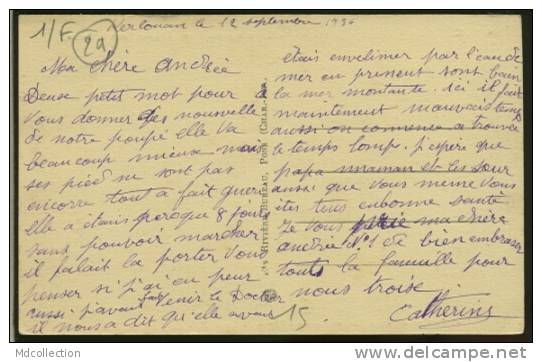 1/F.
29
Kerlouan le 12 septembre 1936
Ma chère Andrée
Deux petit mot pour
vous donner des nouvelle
de notre poupé elle va
beaucoup mieux mais
ses pied ne sont pas
encore tout a fait gueri
elle a étais presque 8 jour
sans pouvoir marcher
il falait la porter vous
penser si j'ai eu peur
aussi j'avait fait venir le Docteur
il nous a dit qu'elle avais
étais envelimer par l'eau de
mer en prenent sont bain
la mer montante. ici il fait
maintement mauvais temp
aussi on commence a trouver
le temps lomp. j'espere que
papa maman et les sœur
aussi que vous meme vous
ites tous en bonne santé
Je vous prie ma chère
andrée de bien embrasser
toute la famille pour
nous troise.
Catherine
15
RIVIÈRE-BUREAU, Pons (Char.-Inf.)
MDcollection
www.delcampe.net